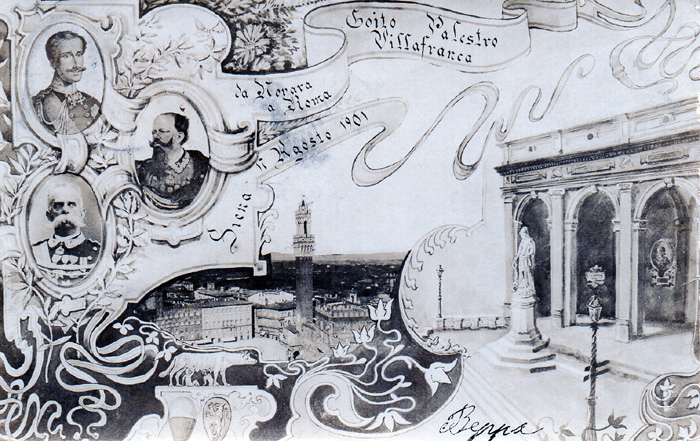 Goito Palestro
Villafranca
da Novara
a Roma
Siena 17 Agosto 1901
Beppe